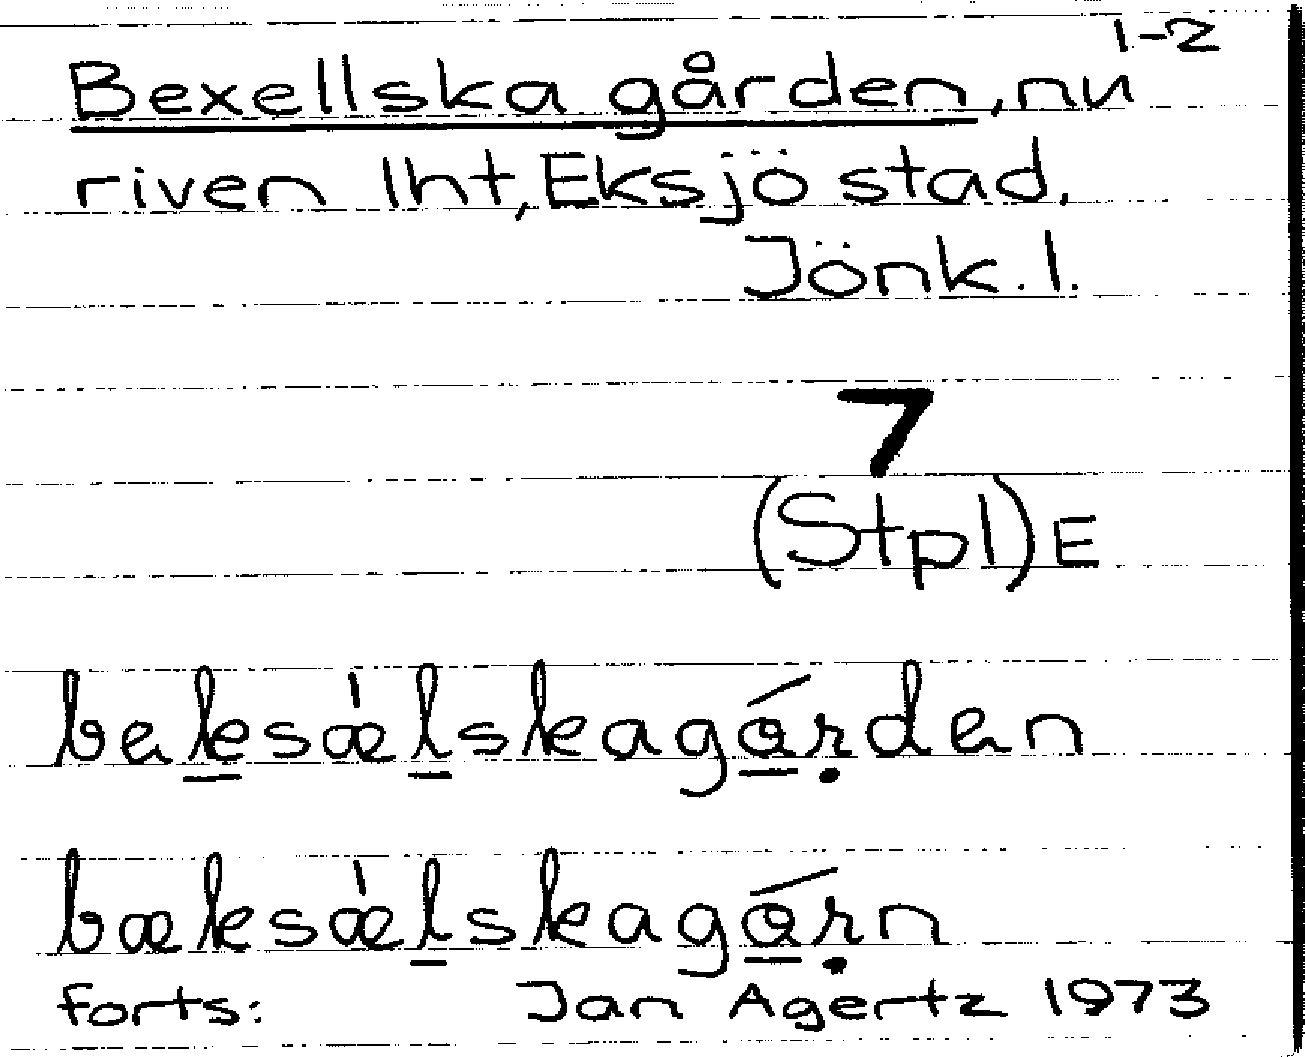 1-2
Bexellska gården, nu
riven lht, Eksjö stad.
Jönk. l.
7
(Stpl) E
beksælskagården
bæksælskagårn
forts: Jan Agertz 1973